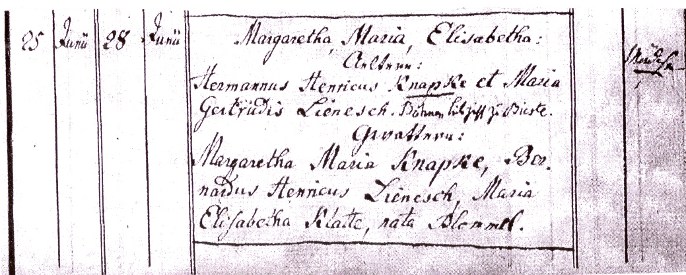 25 Junii 28 Junii
Margaretha, Maria, Elisabetha:
Aeltern:
Hermannus Henricus Knapke et Maria
Gertrudis Lienesch. zu Bieste.
Gevattern:
Margaretha Maria Knapke, Ber-
nardus Henricus Lienesch, Maria
Elisabetha Klatte, nata Blommel.